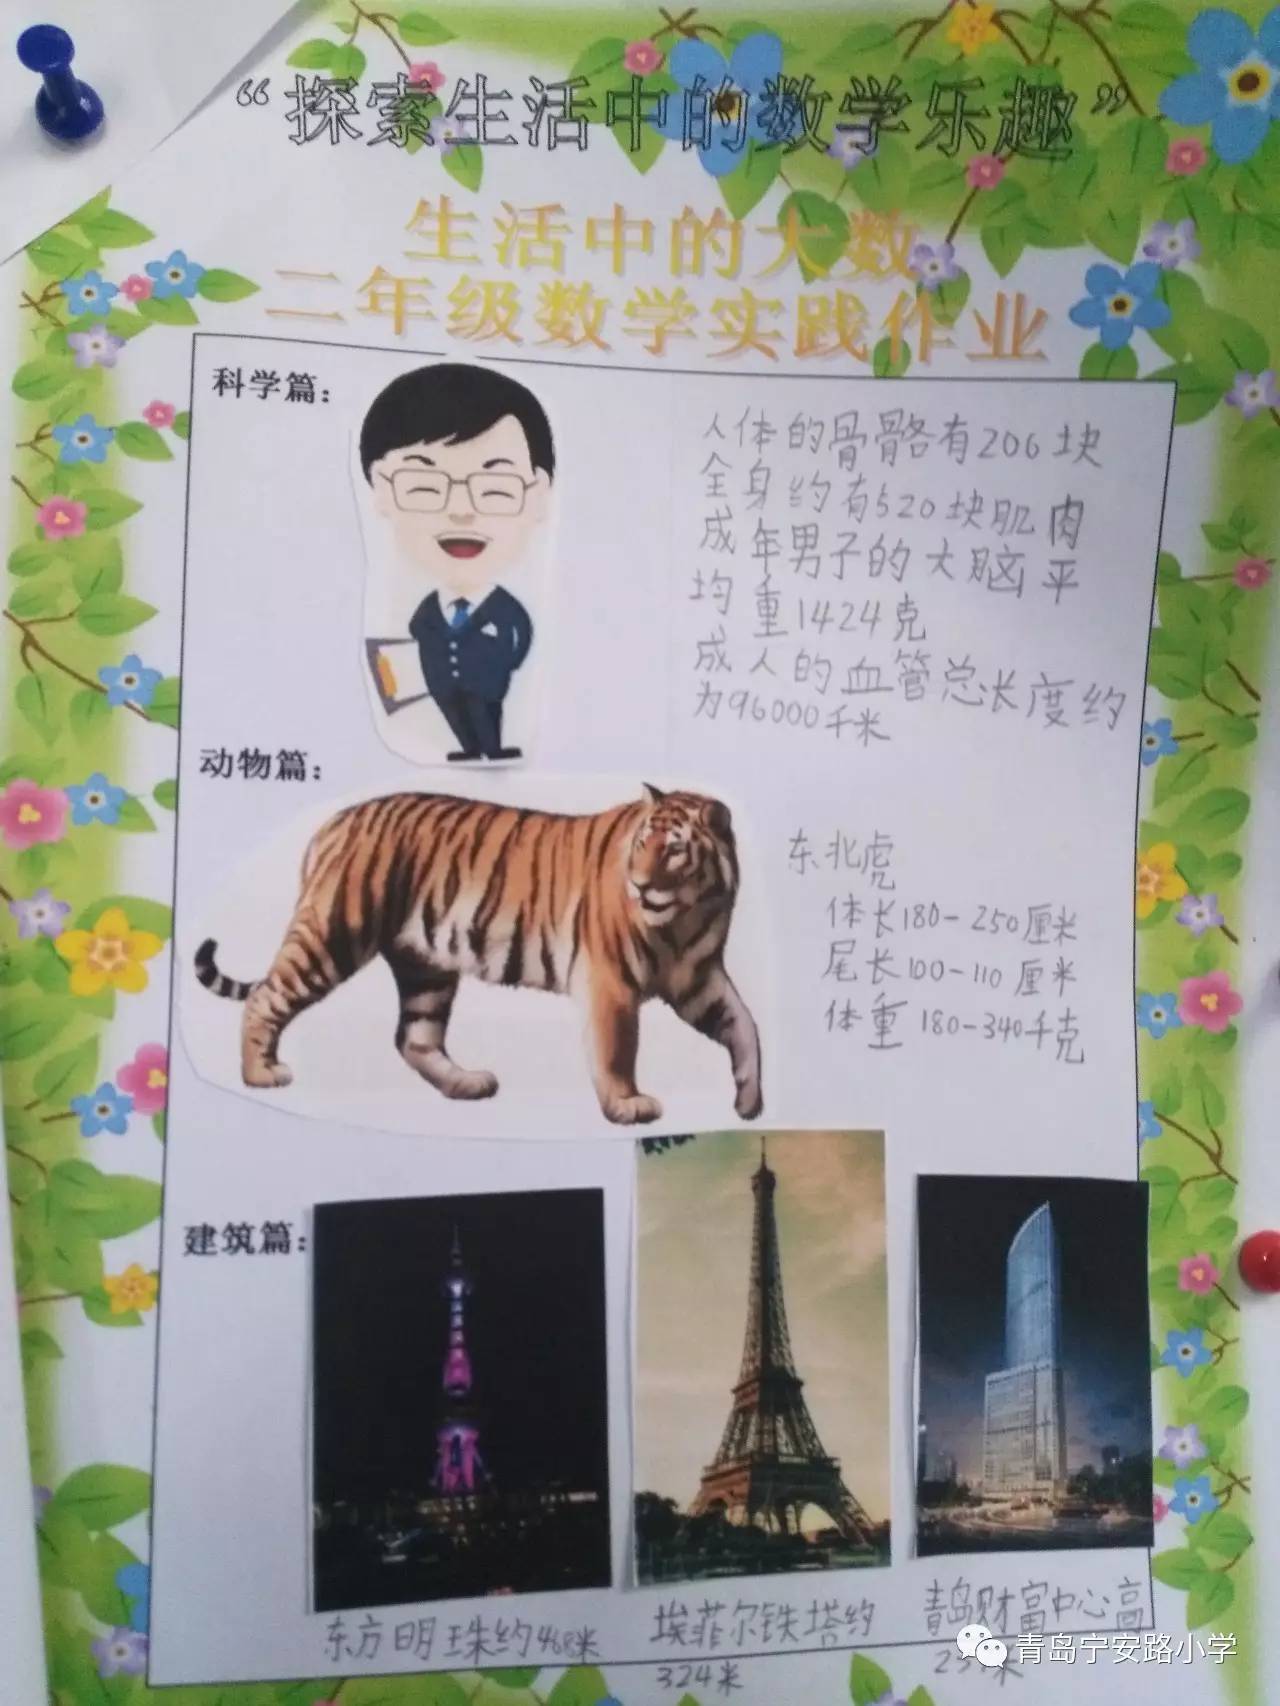 “探索生活中的数学乐趣”
生活中的大数
二年级数学实践作业
科学篇：
人体的骨骼有206块
全身约有520块肌肉
成年男子的大脑平
均重1424克
成人的血管总长度约
为96000千米
动物篇：
东北虎
体长180-250厘米
尾长100-110厘米
体重180-340千克
建筑篇：
东方明珠约468米
埃菲尔铁塔约
324米
青岛财富中心高
米
青岛宁安路小学